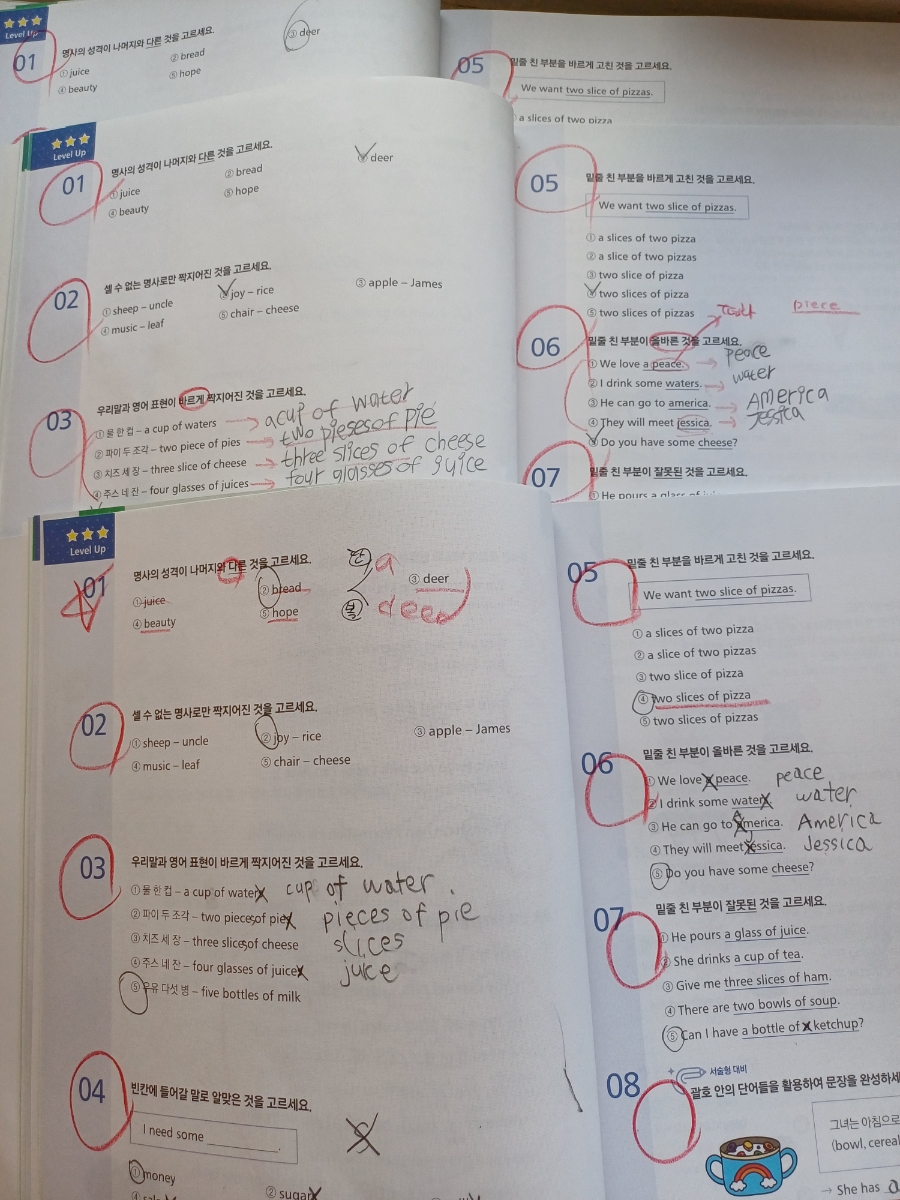 Level Up
01
명사의 성격이 나머지와 다른 것을 고르세요.
① juice
② bread
③ deer
④ beauty
⑤ hope
05
밑줄 친 부분을 바르게 고친 것을 고르세요.
We want two slice of pizzas.
a slices of two pizza
Level Up
01
명사의 성격이 나머지와 다른 것을 고르세요.
① juice
② bread
deer
④ beauty
⑤ hope
02
셀 수 없는 명사로만 짝지어진 것을 고르세요.
① sheep – uncle
joy – rice
③ apple – James
④ music – leaf
⑤ chair – cheese
03
우리말과 영어 표현이 바르게 짝지어진 것을 고르세요.
① 물 한 컵 – a cup of waters → a cup of water
② 파이 두 조각 – two piece of pies → two pieses of pie
③ 치즈 세 장 – three slice of cheese → three slices of cheese
④ 주스 네 잔 – four glasses of juices → four glasses of juice
05
밑줄 친 부분을 바르게 고친 것을 고르세요.
We want two slice of pizzas.
① a slices of two pizza
② a slice of two pizzas
③ two slice of pizza
two slices of pizza
⑤ two slices of pizzas
piece
06
밑줄 친 부분이 올바른 것을 고르세요.
① We love a peace. → peace
② I drink some waters. → water
③ He can go to america. → America
④ They will meet jessica. → Jessica
Do you have some cheese?
07
밑줄 친 부분이 잘못된 것을 고르세요.
① He pours a glass of
Level Up
01
명사의 성격이 나머지와 다른 것을 고르세요.
① juice
② bread
③ deer
④ beauty
⑤ hope
단 a
복 deer
02
셀 수 없는 명사로만 짝지어진 것을 고르세요.
① sheep – uncle
② joy – rice
③ apple – James
④ music – leaf
⑤ chair – cheese
03
우리말과 영어 표현이 바르게 짝지어진 것을 고르세요.
① 물 한 컵 – a cup of waters cup of water.
② 파이 두 조각 – two pieces of pies pieces of pie
③ 치즈 세 장 – three slices of cheese slices
④ 주스 네 잔 – four glasses of juices juice
⑤ 우유 다섯 병 – five bottles of milk
04
빈칸에 들어갈 말로 알맞은 것을 고르세요.
I need some ____________.
① money
② sugar
05
밑줄 친 부분을 바르게 고친 것을 고르세요.
We want two slice of pizzas.
① a slices of two pizza
② a slice of two pizzas
③ two slice of pizza
④ two slices of pizza
⑤ two slices of pizzas
06
밑줄 친 부분이 올바른 것을 고르세요.
① We love a peace. peace
② I drink some waters. water
③ He can go to america. America
④ They will meet jessica. Jessica
⑤ Do you have some cheese?
07
밑줄 친 부분이 잘못된 것을 고르세요.
① He pours a glass of juice.
② She drinks a cup of tea.
③ Give me three slices of ham.
④ There are two bowls of soup.
⑤ Can I have a bottle of ketchup?
08
서술형 대비
괄호 안의 단어들을 활용하여 문장을 완성하세
그녀는 아침으로
(bowl, cereal
→ She has a